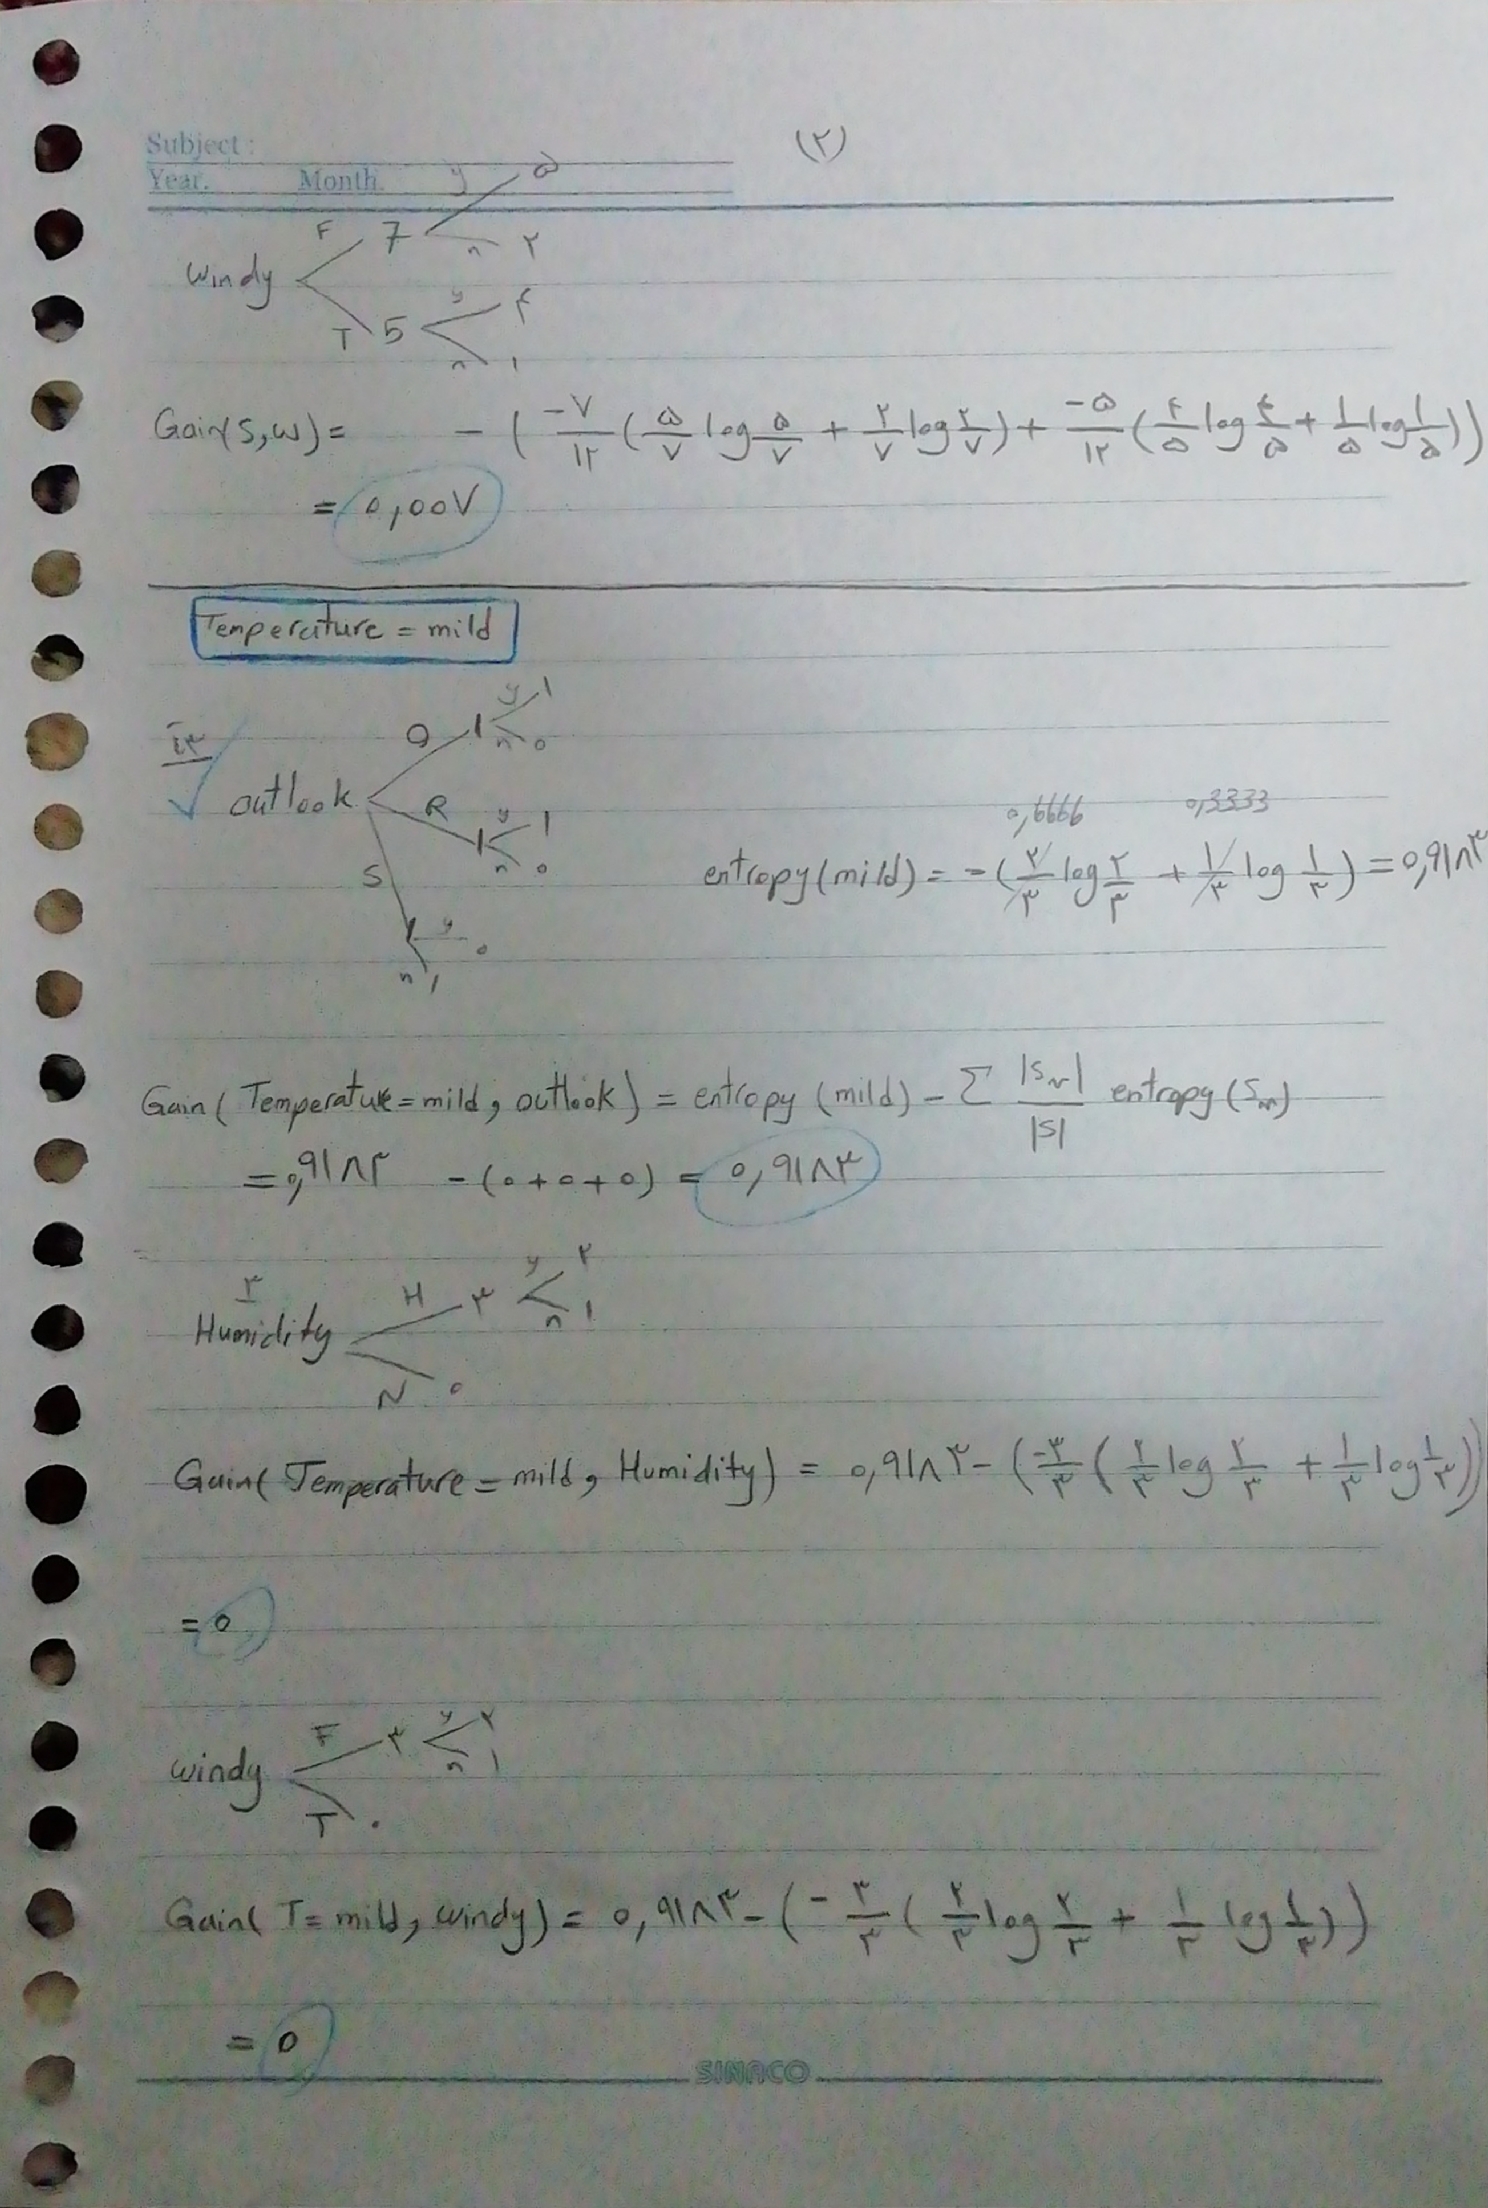 (۲)
Subject :
Year. Month.
y ۵
F 7 n ۲
windy
T 5 y ۴
n ۱
Gain(S,w) = - ( -۷/۱۲ ( ۵/۷ log ۵/۷ + ۲/۷ log ۲/۷ ) + -۵/۱۲ ( ۴/۵ log ۴/۵ + ۱/۵ log ۱/۵ ))
= 0,00۷
Temperature = mild
O ۱ y ۱
n 0
outlook R ۱ y ۱
n 0
S ۱ y 0
n ۱
0,6666 0,3333
entropy(mild) = - ( ۲/۳ log ۲/۳ + ۱/۳ log ۱/۳ ) = 0,۹۱۸۳
Gain( Temperature = mild, outlook) = entropy (mild) - Σ |Sv|/|S| entropy (Sv)
= 0,۹۱۸۳ - (0 + 0 + 0) = 0,۹۱۸۳
۳
Humidity H ۳ y ۲
n ۱
N 0
Gain( Temperature = mild, Humidity) = 0,۹۱۸۳ - ( -۳/۳ ( ۲/۳ log ۲/۳ + ۱/۳ log ۱/۳ ))
= 0
windy F ۳ y ۲
n ۱
T ۰
Gain( T = mild, windy) = 0,۹۱۸۳ - ( - ۳/۳ ( ۲/۳ log ۲/۳ + ۱/۳ log ۱/۳ ))
= 0
SINACO